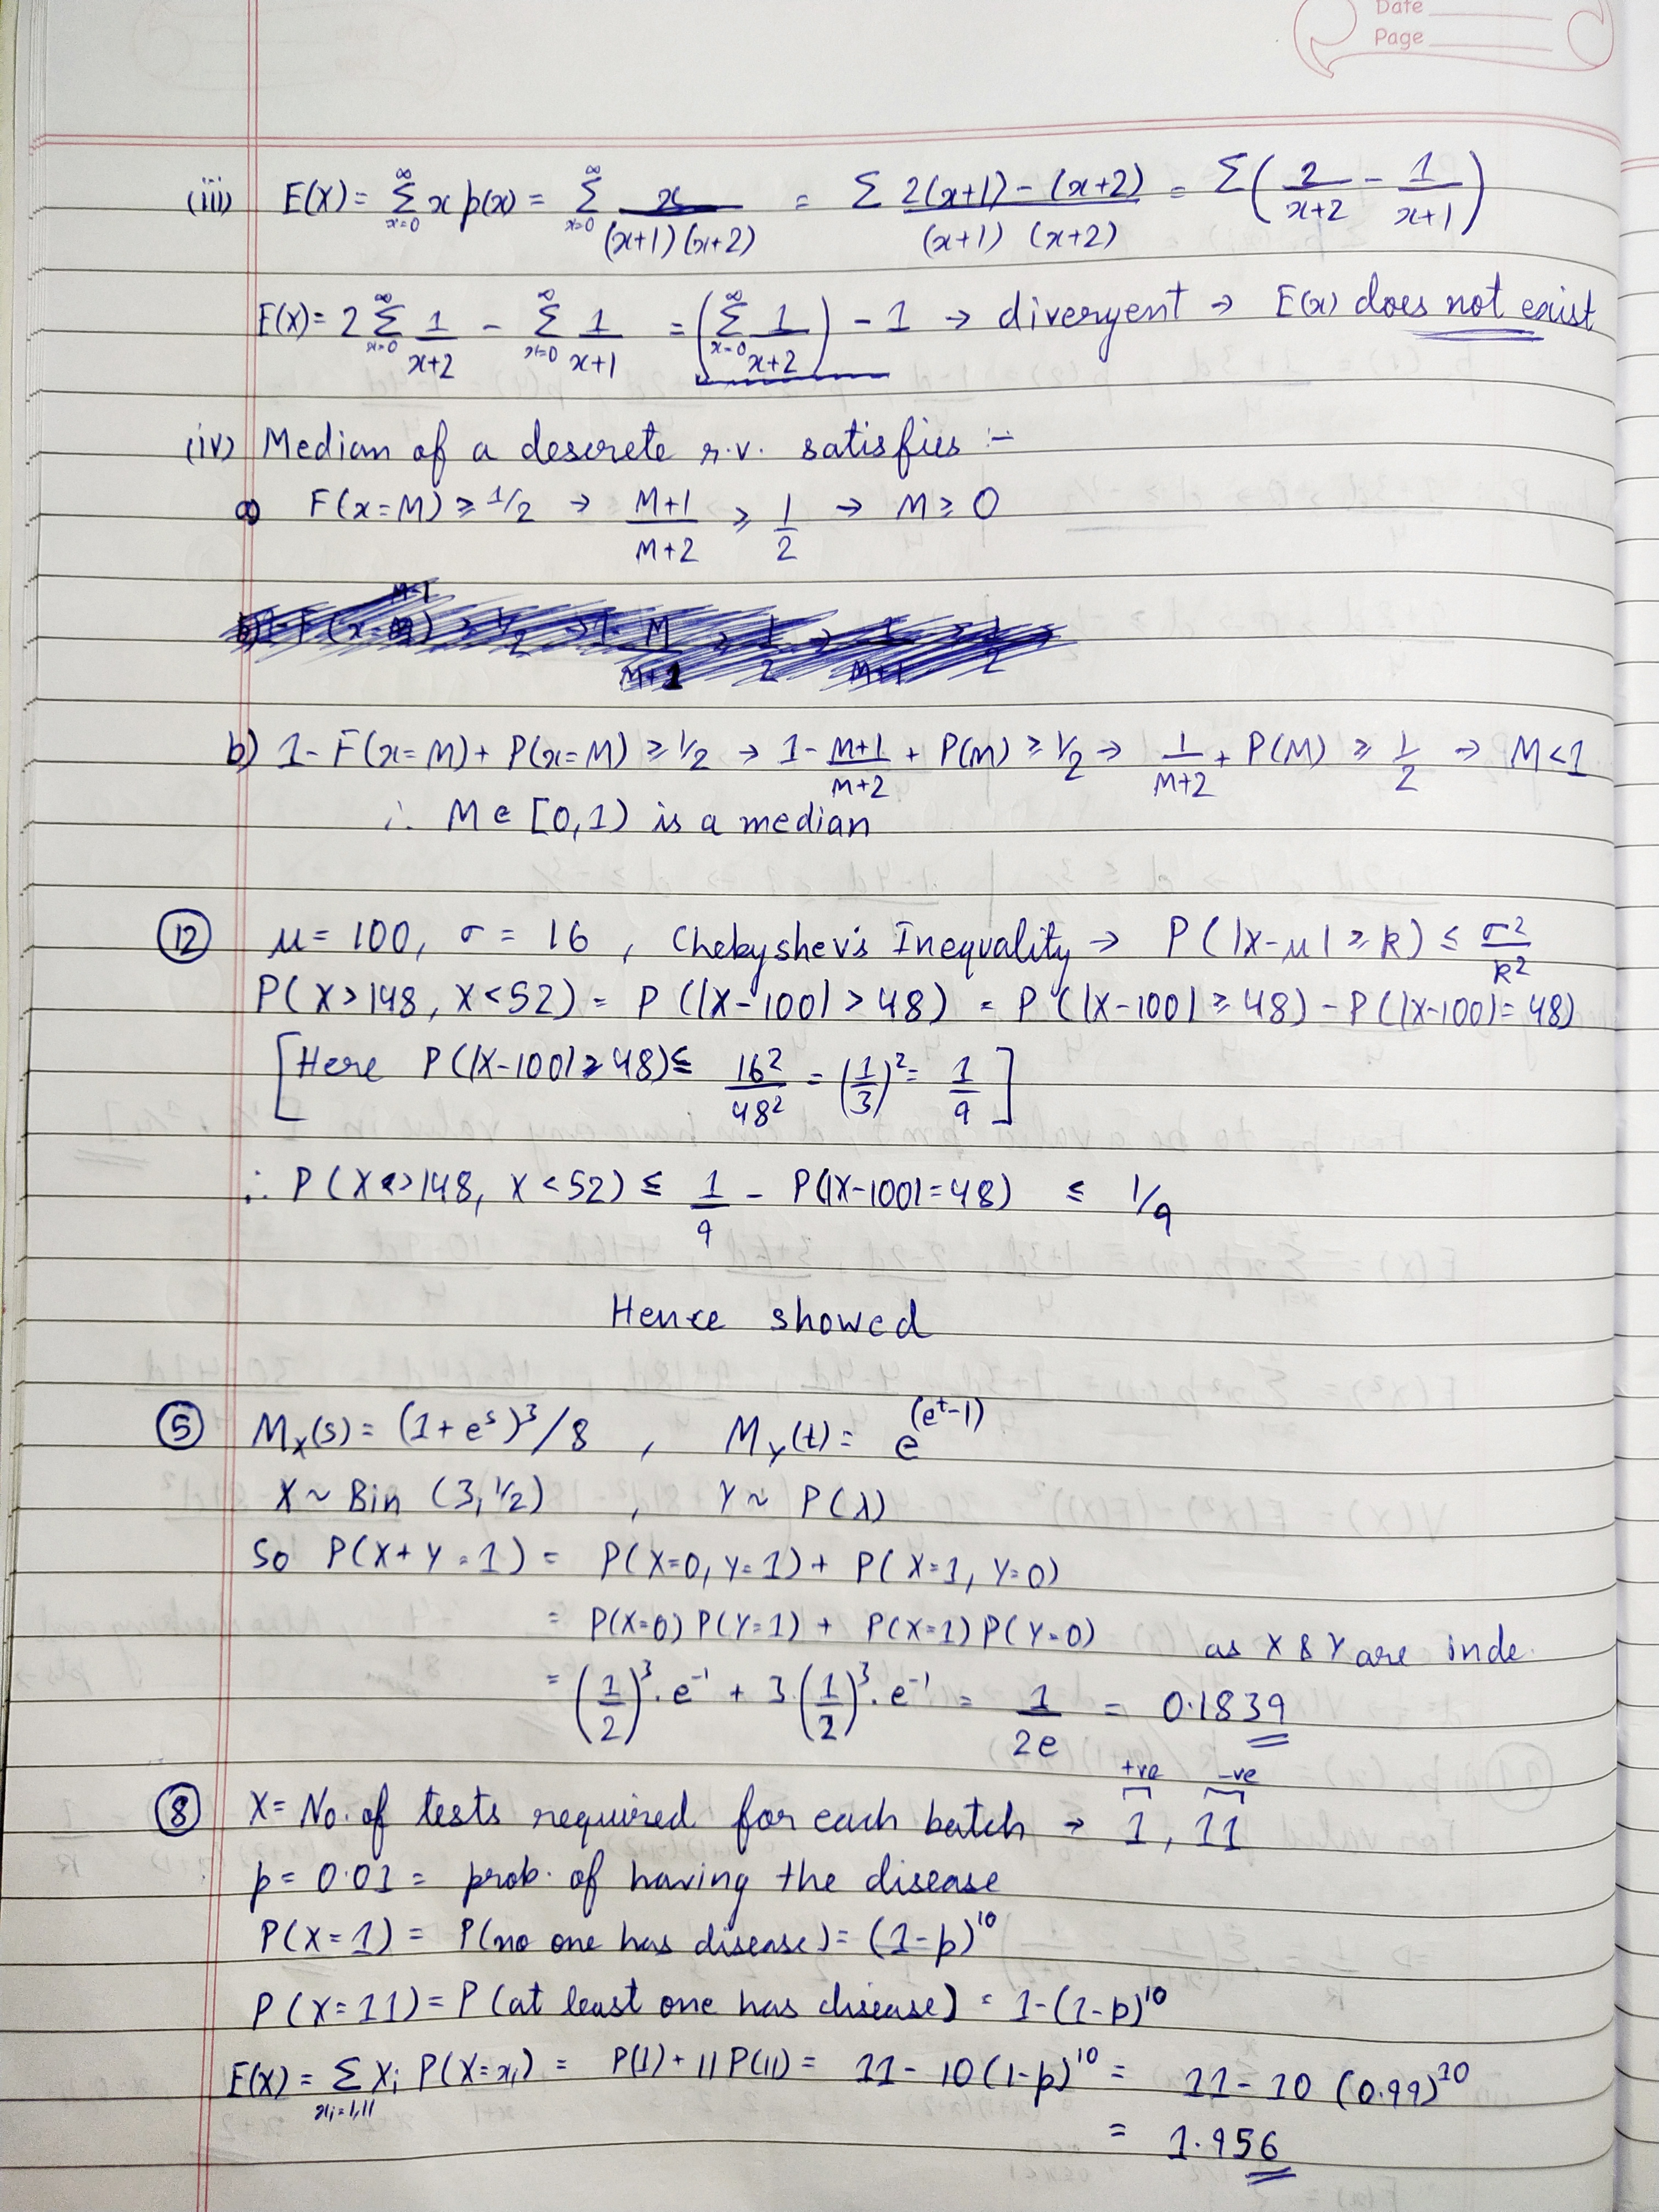 Date
Page
(iii) E(X) = ∞Σx=0 x p(x) = ∞Σx=0 x/(x+1)(x+2) = Σ 2(x+1) - (x+2)/(x+1) (x+2) = Σ(2/x+2 - 1/x+1)
E(X) = 2 ∞Σx=0 1/x+2 - ∞Σx=0 1/x+1 = (∞Σx=0 1/x+2) - 1 → divergent → E(x) does not exist
(iv) Median of a descrete r.v. satisfies :-
a) F(x=M) ≥ 1/2 → M+1/M+2 ≥ 1/2 → M ≥ 0
b) 1 - F(x=M) + P(x=M) ≥ 1/2 → 1 - M+1/M+2 + P(M) ≥ 1/2 → 1/M+2 + P(M) ≥ 1/2 → M < 1
∴ M ∈ [0,1) is a median
(12) μ = 100, σ = 16 , Chebyshev's Inequality → P(|X-μ| ≥ k) ≤ σ²/k²
P(X>148, X<52) = P(|X-100| > 48) = P(|X-100| ≥ 48) - P(|X-100| = 48)
[Here P(|X-100| ≥ 48) ≤ 16²/48² = (1/3)² = 1/9]
∴ P(X>148, X<52) ≤ 1/9 - P(|X-100| = 48) ≤ 1/9
Hence showed
(5) Mx(s) = (1+e^s)³/8 , My(t) = e^(e^t-1)
X ~ Bin (3, 1/2) , Y ~ P(λ)
So P(X+Y=1) = P(X=0, Y=1) + P(X=1, Y=0)
= P(X=0) P(Y=1) + P(X=1) P(Y=0) as X & Y are inde.
= (1/2)³.e⁻¹ + 3.(1/2)³.e⁻¹ = 1/2e = 0.1839
+ve -ve
(8) X = No. of tests required for each batch → 1, 11
p = 0.01 = prob. of having the disease
P(X=1) = P(no one has disease) = (1-p)¹⁰
P(X=11) = P(at least one has disease) = 1-(1-p)¹⁰
E(X) = Σxi=1,11 Xi P(X=xi) = P(1) + 11P(11) = 11 - 10(1-p)¹⁰ = 11 - 10 (0.99)¹⁰
= 1.956